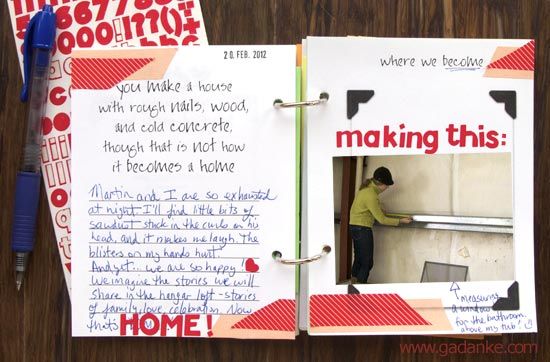 20 FEB. 2012
you make a house
with rough nails, wood,
and cold concrete,
though that is not how
it becomes a home
Martin and I are so exhausted
at night. I'll find little bits of
sawdust stuck in the curls on his
head, and it makes me laugh. The
blisters on my hands hurt.
And yet... we are so happy!
We imagine the stories we will
share in the hangar loft - stories
of family, love, celebration. Now
that's
HOME!
where we become
making this:
measuring
a window
for the bathroom,
above my tub!
www.gadanke.com